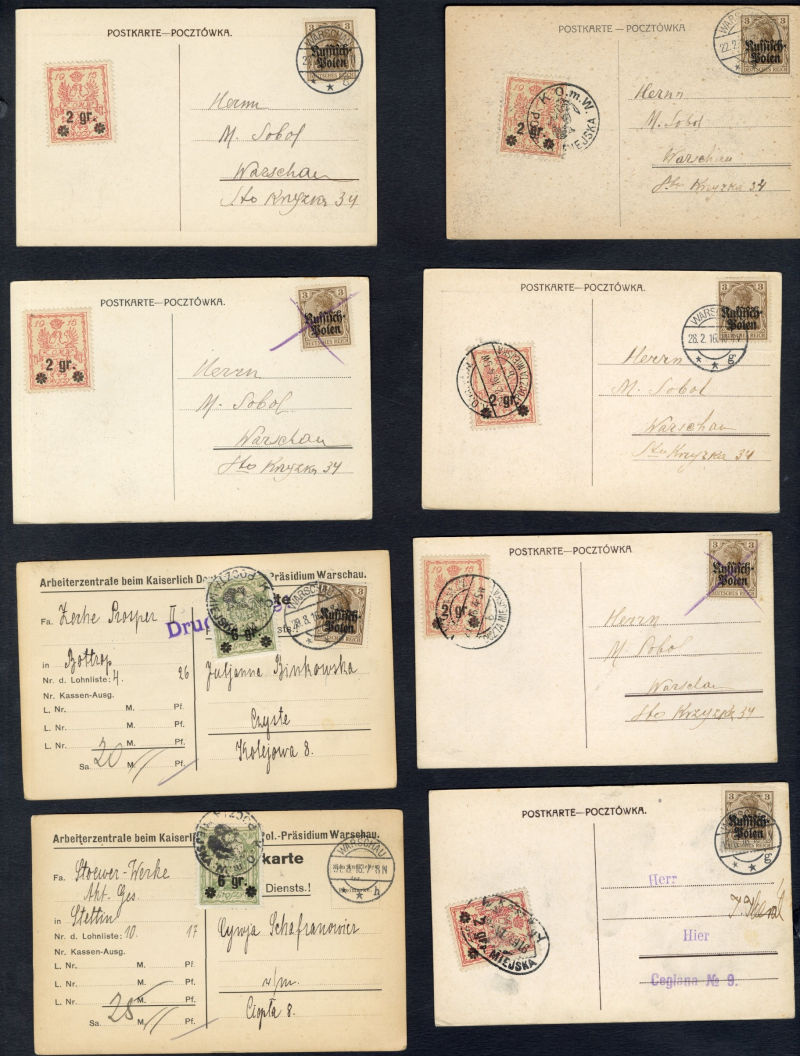 POSTKARTE—POCZTÓWKA.
3 3
Russisch-
Polen
DEUTSCHES REICH
WARSCHAU
1915
2 gr.
Herrn
M. Sobol
Warschau
Sto Krzyzka 34
POSTKARTE—POCZTÓWKA.
3 3
Russisch-
Polen
WARSCHAU
22.2.
2 gr.
K.O.m.W.
MIEJSKA
Herrn
M. Sobol
Warschau
Sto Krzyzka 34
POSTKARTE—POCZTÓWKA.
3 3
Russisch-
Polen
DEUTSCHES REICH
1915
2 gr.
Herrn
M. Sobol
Warschau
Sto Krzyzka 34
POSTKARTE—POCZTÓWKA.
3 3
Russisch-
Polen
DEUTSCHES REICH
WARSCHAU
28.2.16
g
2 gr.
Herrn
M. Sobol
Warschau
Sto Krzyzka 34
Arbeiterzentrale beim Kaiserlich Präsidium Warschau.
Fa. Zeche Prosper II
in Bottrop
Nr. d. Lohnliste: 4. 26
Nr. Kassen-Ausg.
L. Nr. M. Pf.
L. Nr. M. Pf.
L. Nr. M. Pf.
Sa. 20 M. Pf.
6 gr.
WARSCHAU
3
Russisch-
Polen
Juljanna Binkowska
Czyste
Kolejowa 8.
POSTKARTE—POCZTÓWKA.
3 3
Russisch-
Polen
DEUTSCHES REICH
2 gr.
Herrn
M. Sobol
Warschau
Sto Krzyzka 34
Arbeiterzentrale beim Kaiserlich ol.-Präsidium Warschau.
karte
Diensts!
Fa. Stoewer-Werke
Akt. Ges.
in Stettin
Nr. d. Lohnliste: 10. 17
Nr. Kassen-Ausg.
L. Nr. M. Pf.
L. Nr. M. Pf.
L. Nr. M. Pf.
Sa. 28 M. Pf.
6 gr.
WARSCHAU
h
Cywja Schafranowicz
w/m.
Ciepła 8.
POSTKARTE—POCZTÓWKA.
3 3
Russisch-
Polen
WARSCHAU
g
2 gr.
MIEJSKA
Herr
Hier
Ceglana № 9.